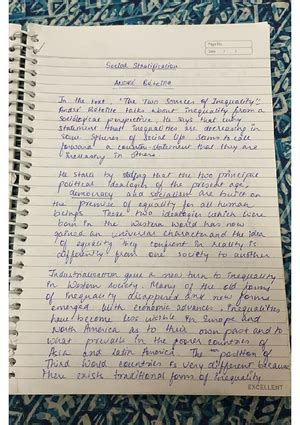 Page No.
Date
Social Stratification
ANDRÉ BÉTEILLE
In the text, "The Two Sources of Inequality",
André Béteille talks about inequality from a
sociological perspective. He says that every
statement that Inequalities are decreasing in
some spheres of Social life seem to call
forward a counter-statement that they are
increasing in others
He starts by stating that the two principal
political idealogies of the present age,
democracy and socialism are built on
the premise of equality for all human
beings. These two ideologies which were
born in the Western World has now
gained an universal character and the idea
of equality they confront in reality is
differently from one society to another
Industrialisation gave a new turn to Inequality
in Western society. Many of the old forms
of Inequality disappeared and new forms
emerged with economic advances. Inequalities
have become less visible in Europe and
North America as to their own past and to
what prevails in the poorer countries of
Asia and Latin America. The position of
Third World countries is very different because
there exists traditional forms of Inequality
EXCELLENT